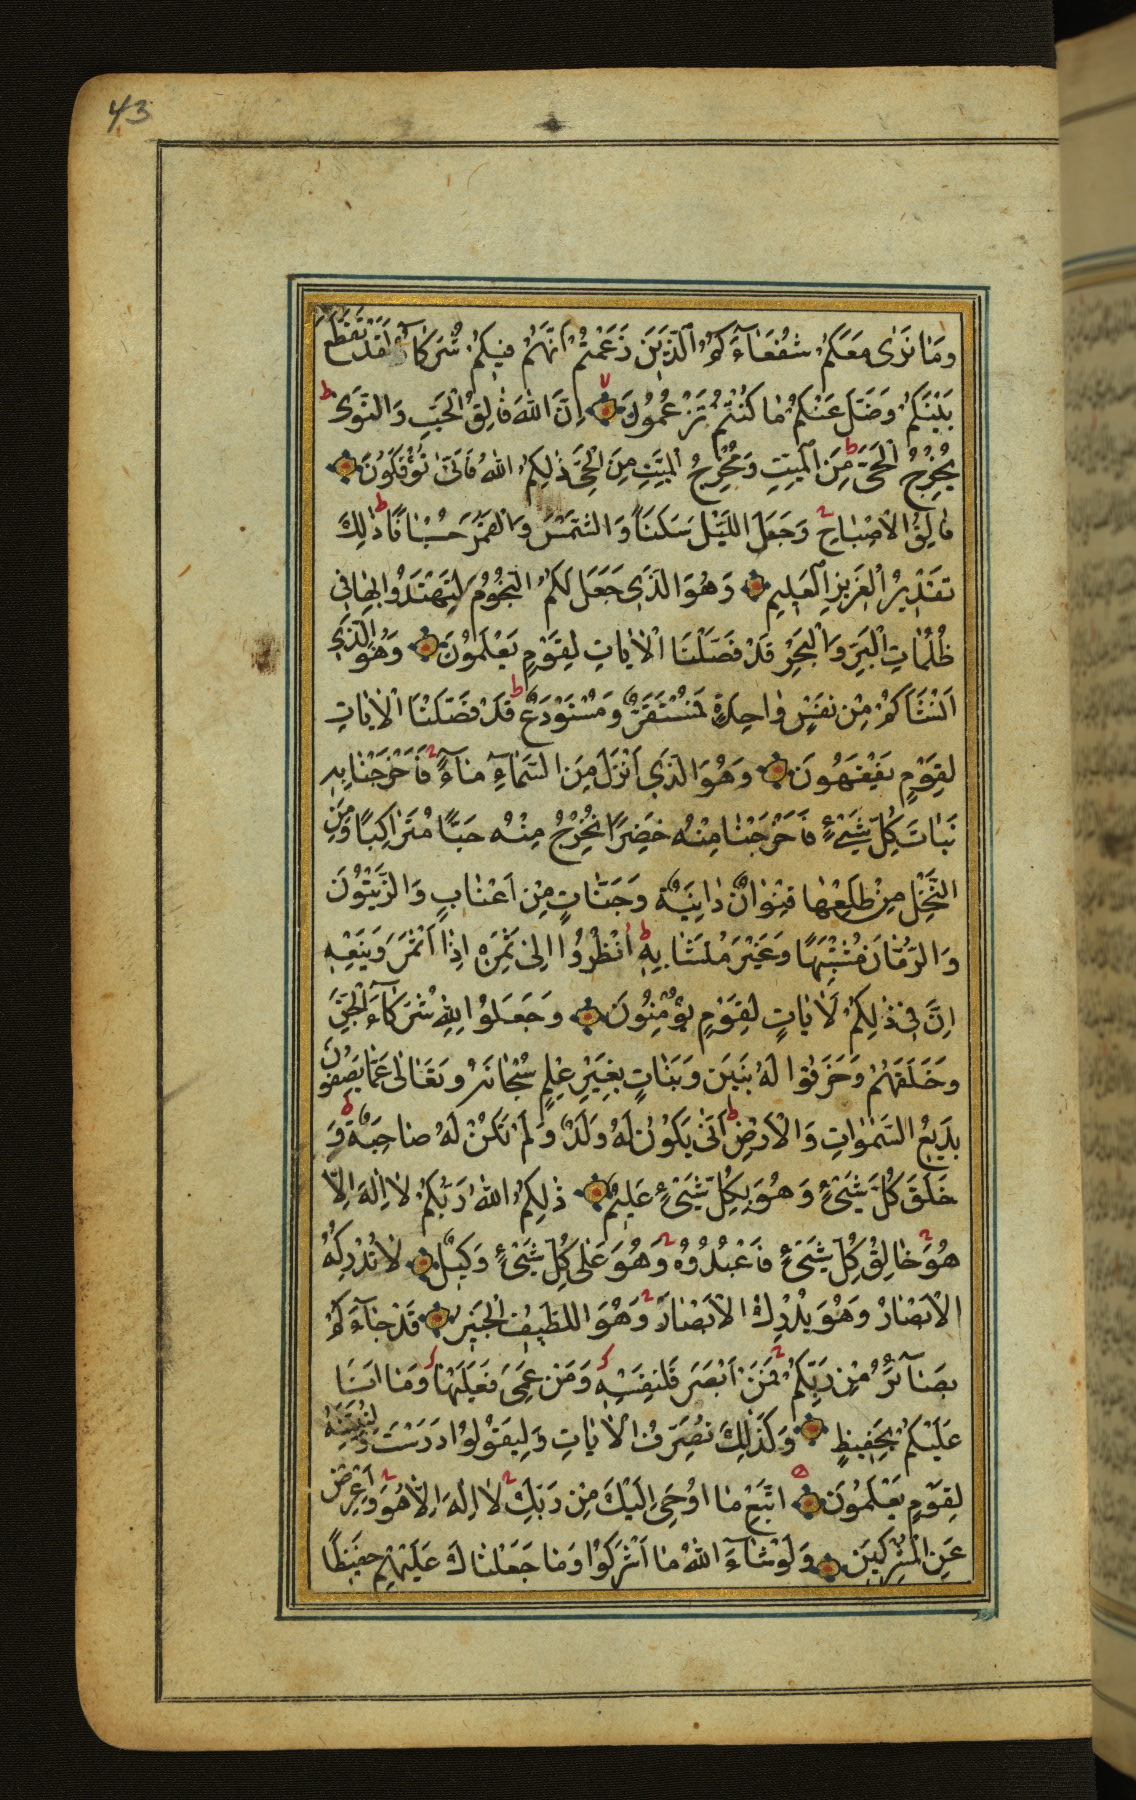 43
وَمَا نَرٰى مَعَكُمْ شُفَعَآءَكُمُ الَّذِينَ زَعَمْتُمْ اَنَّهُمْ فِيكُمْ شُرَكَآءُ لَقَدْ تَقَطَّعَ
بَيْنَكُمْ وَضَلَّ عَنْكُمْ مَا كُنْتُمْ تَزْعُمُونَ اِنَّ اللهَ فَالِقُ الْحَبِّ وَالنَّوٰى ط
يُخْرِجُ الْحَىَّ مِنَ الْمَيِّتِ وَمُخْرِجُ الْمَيِّتِ مِنَ الْحَىِّ ذٰلِكُمُ اللهُ فَاَنّٰى تُؤْفَكُونَ
فَالِقُ الْاِصْبَاحِ وَجَعَلَ اللَّيْلَ سَكَنًا وَالشَّمْسَ وَالْقَمَرَ حُسْبَانًا ط ذٰلِكَ
تَقْدِيرُ الْعَزِيزِ الْعَلِيمِ وَهُوَ الَّذِى جَعَلَ لَكُمُ النُّجُومَ لِتَهْتَدُوا بِهَا فِى
ظُلُمَاتِ الْبَرِّ وَالْبَحْرِ قَدْ فَصَّلْنَا الْاٰيَاتِ لِقَوْمٍ يَعْلَمُونَ وَهُوَ الَّذِى
اَنْشَاَكُمْ مِنْ نَفْسٍ وَاحِدَةٍ فَمُسْتَقَرٌّ وَمُسْتَوْدَعٌ ط قَدْ فَصَّلْنَا الْاٰيَاتِ
لِقَوْمٍ يَفْقَهُونَ وَهُوَ الَّذِى اَنْزَلَ مِنَ السَّمَآءِ مَآءً فَاَخْرَجْنَا بِهِ
نَبَاتَ كُلِّ شَىْءٍ فَاَخْرَجْنَا مِنْهُ خَضِرًا نُخْرِجُ مِنْهُ حَبًّا مُتَرَاكِبًا وَمِنَ
النَّخْلِ مِنْ طَلْعِهَا قِنْوَانٌ دَانِيَةٌ وَجَنَّاتٍ مِنْ اَعْنَابٍ وَالزَّيْتُونَ
وَالرُّمَّانَ مُشْتَبِهًا وَغَيْرَ مُتَشَابِهٍ ط اُنْظُرُوا اِلٰى ثَمَرِهِ اِذَا اَثْمَرَ وَيَنْعِهِ
اِنَّ فِى ذٰلِكُمْ لَاٰيَاتٍ لِقَوْمٍ يُؤْمِنُونَ وَجَعَلُوا لِلّٰهِ شُرَكَآءَ الْجِنَّ
وَخَلَقَهُمْ وَخَرَقُوا لَهُ بَنِينَ وَبَنَاتٍ بِغَيْرِ عِلْمٍ سُبْحَانَهُ وَتَعَالٰى عَمَّا يَصِفُونَ
بَدِيعُ السَّمٰوَاتِ وَالْاَرْضِ ط اَنّٰى يَكُونُ لَهُ وَلَدٌ وَلَمْ تَكُنْ لَهُ صَاحِبَةٌ ط وَ
خَلَقَ كُلَّ شَىْءٍ وَهُوَ بِكُلِّ شَىْءٍ عَلِيمٌ ذٰلِكُمُ اللهُ رَبُّكُمْ لَا اِلٰهَ اِلَّا
هُوَ خَالِقُ كُلِّ شَىْءٍ فَاعْبُدُوهُ وَهُوَ عَلٰى كُلِّ شَىْءٍ وَكِيلٌ لَا تُدْرِكُهُ
الْاَبْصَارُ وَهُوَ يُدْرِكُ الْاَبْصَارَ وَهُوَ اللَّطِيفُ الْخَبِيرُ قَدْ جَآءَكُمْ
بَصَآئِرُ مِنْ رَبِّكُمْ فَمَنْ اَبْصَرَ فَلِنَفْسِهِ وَمَنْ عَمِىَ فَعَلَيْهَا وَمَا اَنَا
عَلَيْكُمْ بِحَفِيظٍ وَكَذٰلِكَ نُصَرِّفُ الْاٰيَاتِ وَلِيَقُولُوا دَرَسْتَ وَلِنُبَيِّنَهُ
لِقَوْمٍ يَعْلَمُونَ اتَّبِعْ مَا اُوحِىَ اِلَيْكَ مِنْ رَبِّكَ لَا اِلٰهَ اِلَّا هُوَ وَاَعْرِضْ
عَنِ الْمُشْرِكِينَ وَلَوْ شَآءَ اللهُ مَا اَشْرَكُوا وَمَا جَعَلْنَاكَ عَلَيْهِمْ حَفِيظًا